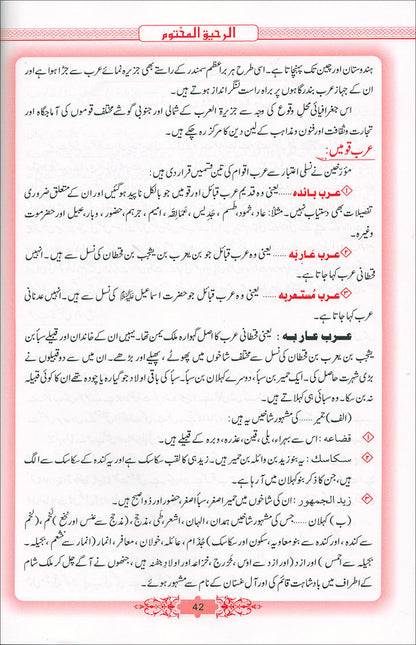 الرحیق المختوم
ہندوستان اور چین تک پہنچاتا ہے۔ اسی طرح ہر براعظم سمندر کے راستے بھی جزیرہ نمائے عرب سے جڑا ہوا ہے اور
ان کے جہاز عرب بندرگاہوں پر براہ راست لنگر انداز ہوتے ہیں۔
اس جغرافیائی محل وقوع کی وجہ سے جزیرۃ العرب کے شمالی اور جنوبی گوشے مختلف قوموں کی آماجگاہ اور
تجارت و ثقافت اور فنون و مذاہب کے لین دین کا مرکز رہ چکے ہیں۔
عرب قومیں:
مؤرخین نے نسلی اعتبار سے عرب اقوام کی تین قسمیں قرار دی ہیں:
① عرب بائدہ ...... یعنی وہ قدیم عرب قبائل اور قومیں جو بالکل ناپید ہو گئیں اور ان کے متعلق ضروری
تفصیلات بھی دستیاب نہیں۔ مثلاً: عاد، ثمود، طسم، جدیس، عمالقہ، امیم، جرہم، حضور، وبار، عبیل اور حضرموت
وغیرہ۔
② عرب عاربہ ...... یعنی وہ عرب قبائل جو بن یعرب بن یشجب بن قحطان کی نسل سے ہیں۔ انہیں
قحطانی عرب کہا جاتا ہے۔
③ عرب مستعربہ ...... یعنی وہ عرب قبائل جو حضرت اسماعیل ﷺ کی نسل سے ہیں۔ انہیں عدنانی
عرب کہا جاتا ہے۔
عرب عاربہ : یعنی قحطانی عرب کا اصل گہوارہ ملک یمن تھا۔ یہیں ان کے خاندان اور قبیلے سبا بن
یشجب بن یعرب بن قحطان کی نسل سے مختلف شاخوں میں پھوٹے، پھیلے اور بڑھے۔ ان میں سے دو قبیلوں نے
بڑی شہرت حاصل کی۔ ایک حمیر بن سبا، دوسرے کہلان بن سبا۔ سبا کی باقی اولاد جو گیارہ یا چودہ تھے ان کا کوئی قبیلہ
نہ بن سکا۔ وہ سبائی ہی کہلاتے ہیں۔
(الف) حمیر ...... کی مشہور شاخیں یہ ہیں:
① قضاعہ : اس سے بہراء، بلی، قین، عذرہ، وبرہ کے قبیلے ہیں۔
② سکاسک : یہ بنو زید بن وائلہ بن حمیر ہیں۔ زید ہی کا لقب سکاسک ہے اور یہ کندہ کے سکاسک سے الگ
ہیں، جن کا ذکر بنو کہلان میں آ رہا ہے۔
③ زید الجمهور : ان کی شاخوں میں حمیر اصغر، سبا اصغر، حضور اور ذو اصبح ہیں۔
(ب) کہلان ...... جس کی مشہور شاخیں ہمدان، الہان، اشعر، طی، مذحج، (مذحج سے عنس اور نخع) لخم، (لخم
سے کندہ، اور کندہ سے بنو معاویہ، سکون اور سکاسک) جذام، عاملہ، خولان، معافر، انمار (انمار سے خثعم، بجیلہ۔
بجیلہ سے احمس) اور ازد (اور ازد سے اوس، خزرج، خزاعہ اور اولاد جفنہ ہیں، جنھوں نے آگے چل کر ملک شام
کے اطراف میں بادشاہت قائم کی اور آل غسان کے نام سے مشہور ہوئے۔
42